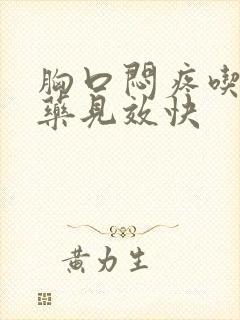 胸口悶疼喫
藥見效快
黃力生